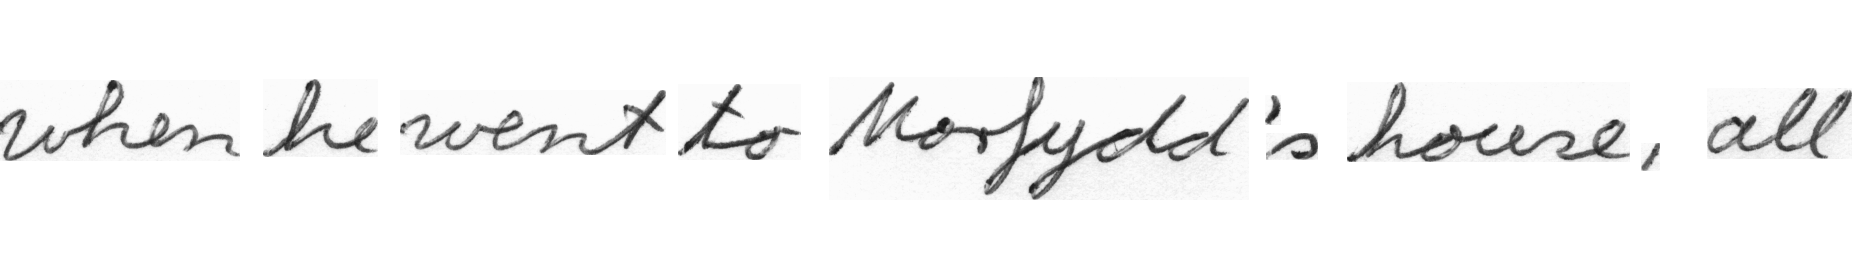 when he went to Morfydd's house, all